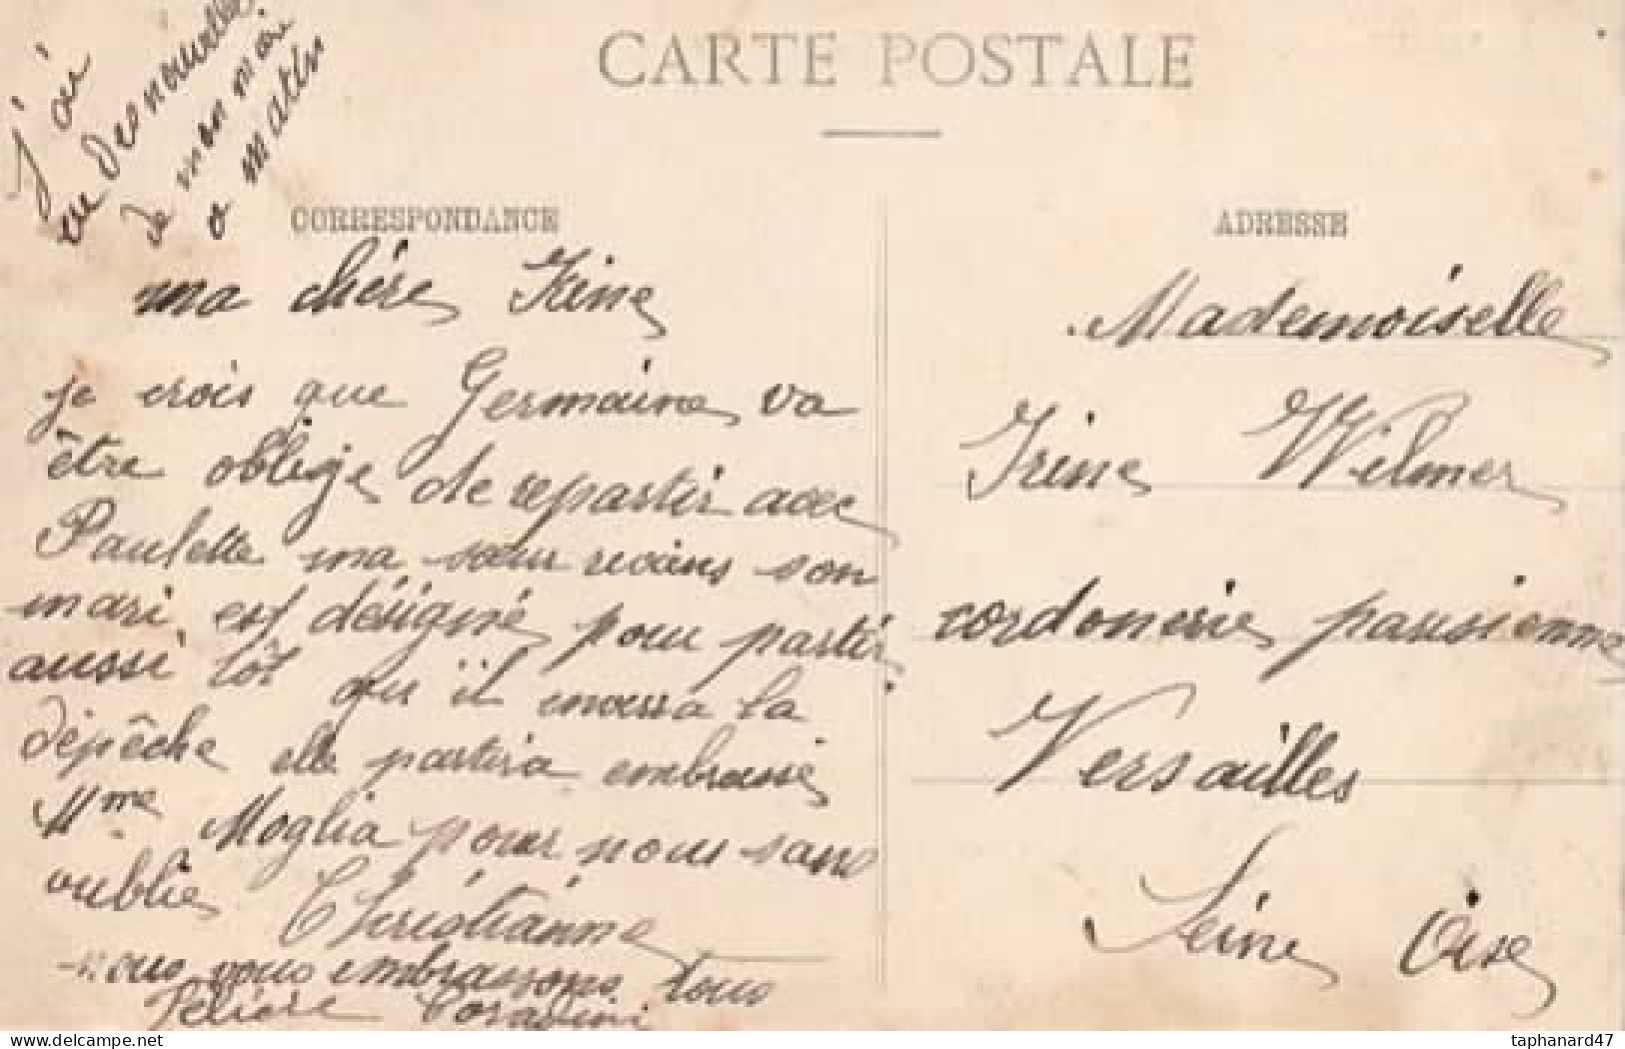 J'ai
eu des nouvelle
de mon mari
a matin
CARTE POSTALE
CORRESPONDANCE
ADRESSE
ma chère Irène
je crois que Germaine va
être oblige de repartir avec
Paulette ma sœur reviens son
mari est désigné pour partir
aussi tôt qu'il enverra la
dépêche elle partira embrasse
Mme Moglia pour nous sans
oublie Christianne
nous vous embrassons tous
Coradini
Mademoiselle
Irène Wilmer
cordonerie parisienne
Versailles
Seine Oise
taphanard47